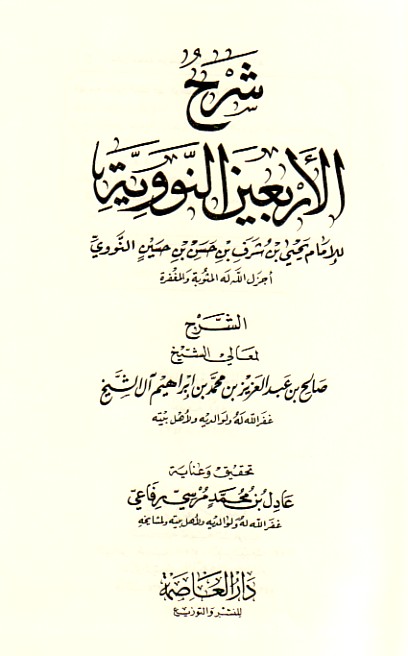 شَرْحُ
الأَرْبَعِينَ النَّوَوِيَّةِ
للإمام يحيى بن شرف بن حسن بن حسين النووي
أجزل الله له المثوبة والمغفرة
الشرح
لمعالي الشيخ
صالح بن عبد العزيز بن محمد بن إبراهيم آل الشيخ
غفر الله له ولوالديه ولأهل بيته
تحقيق وعناية
عادل بن محمد مرسي رفاعي
غفر الله له ولوالديه ولأهل بيته ولمشايخه
دار العاصمة
للنشر والتوزيع